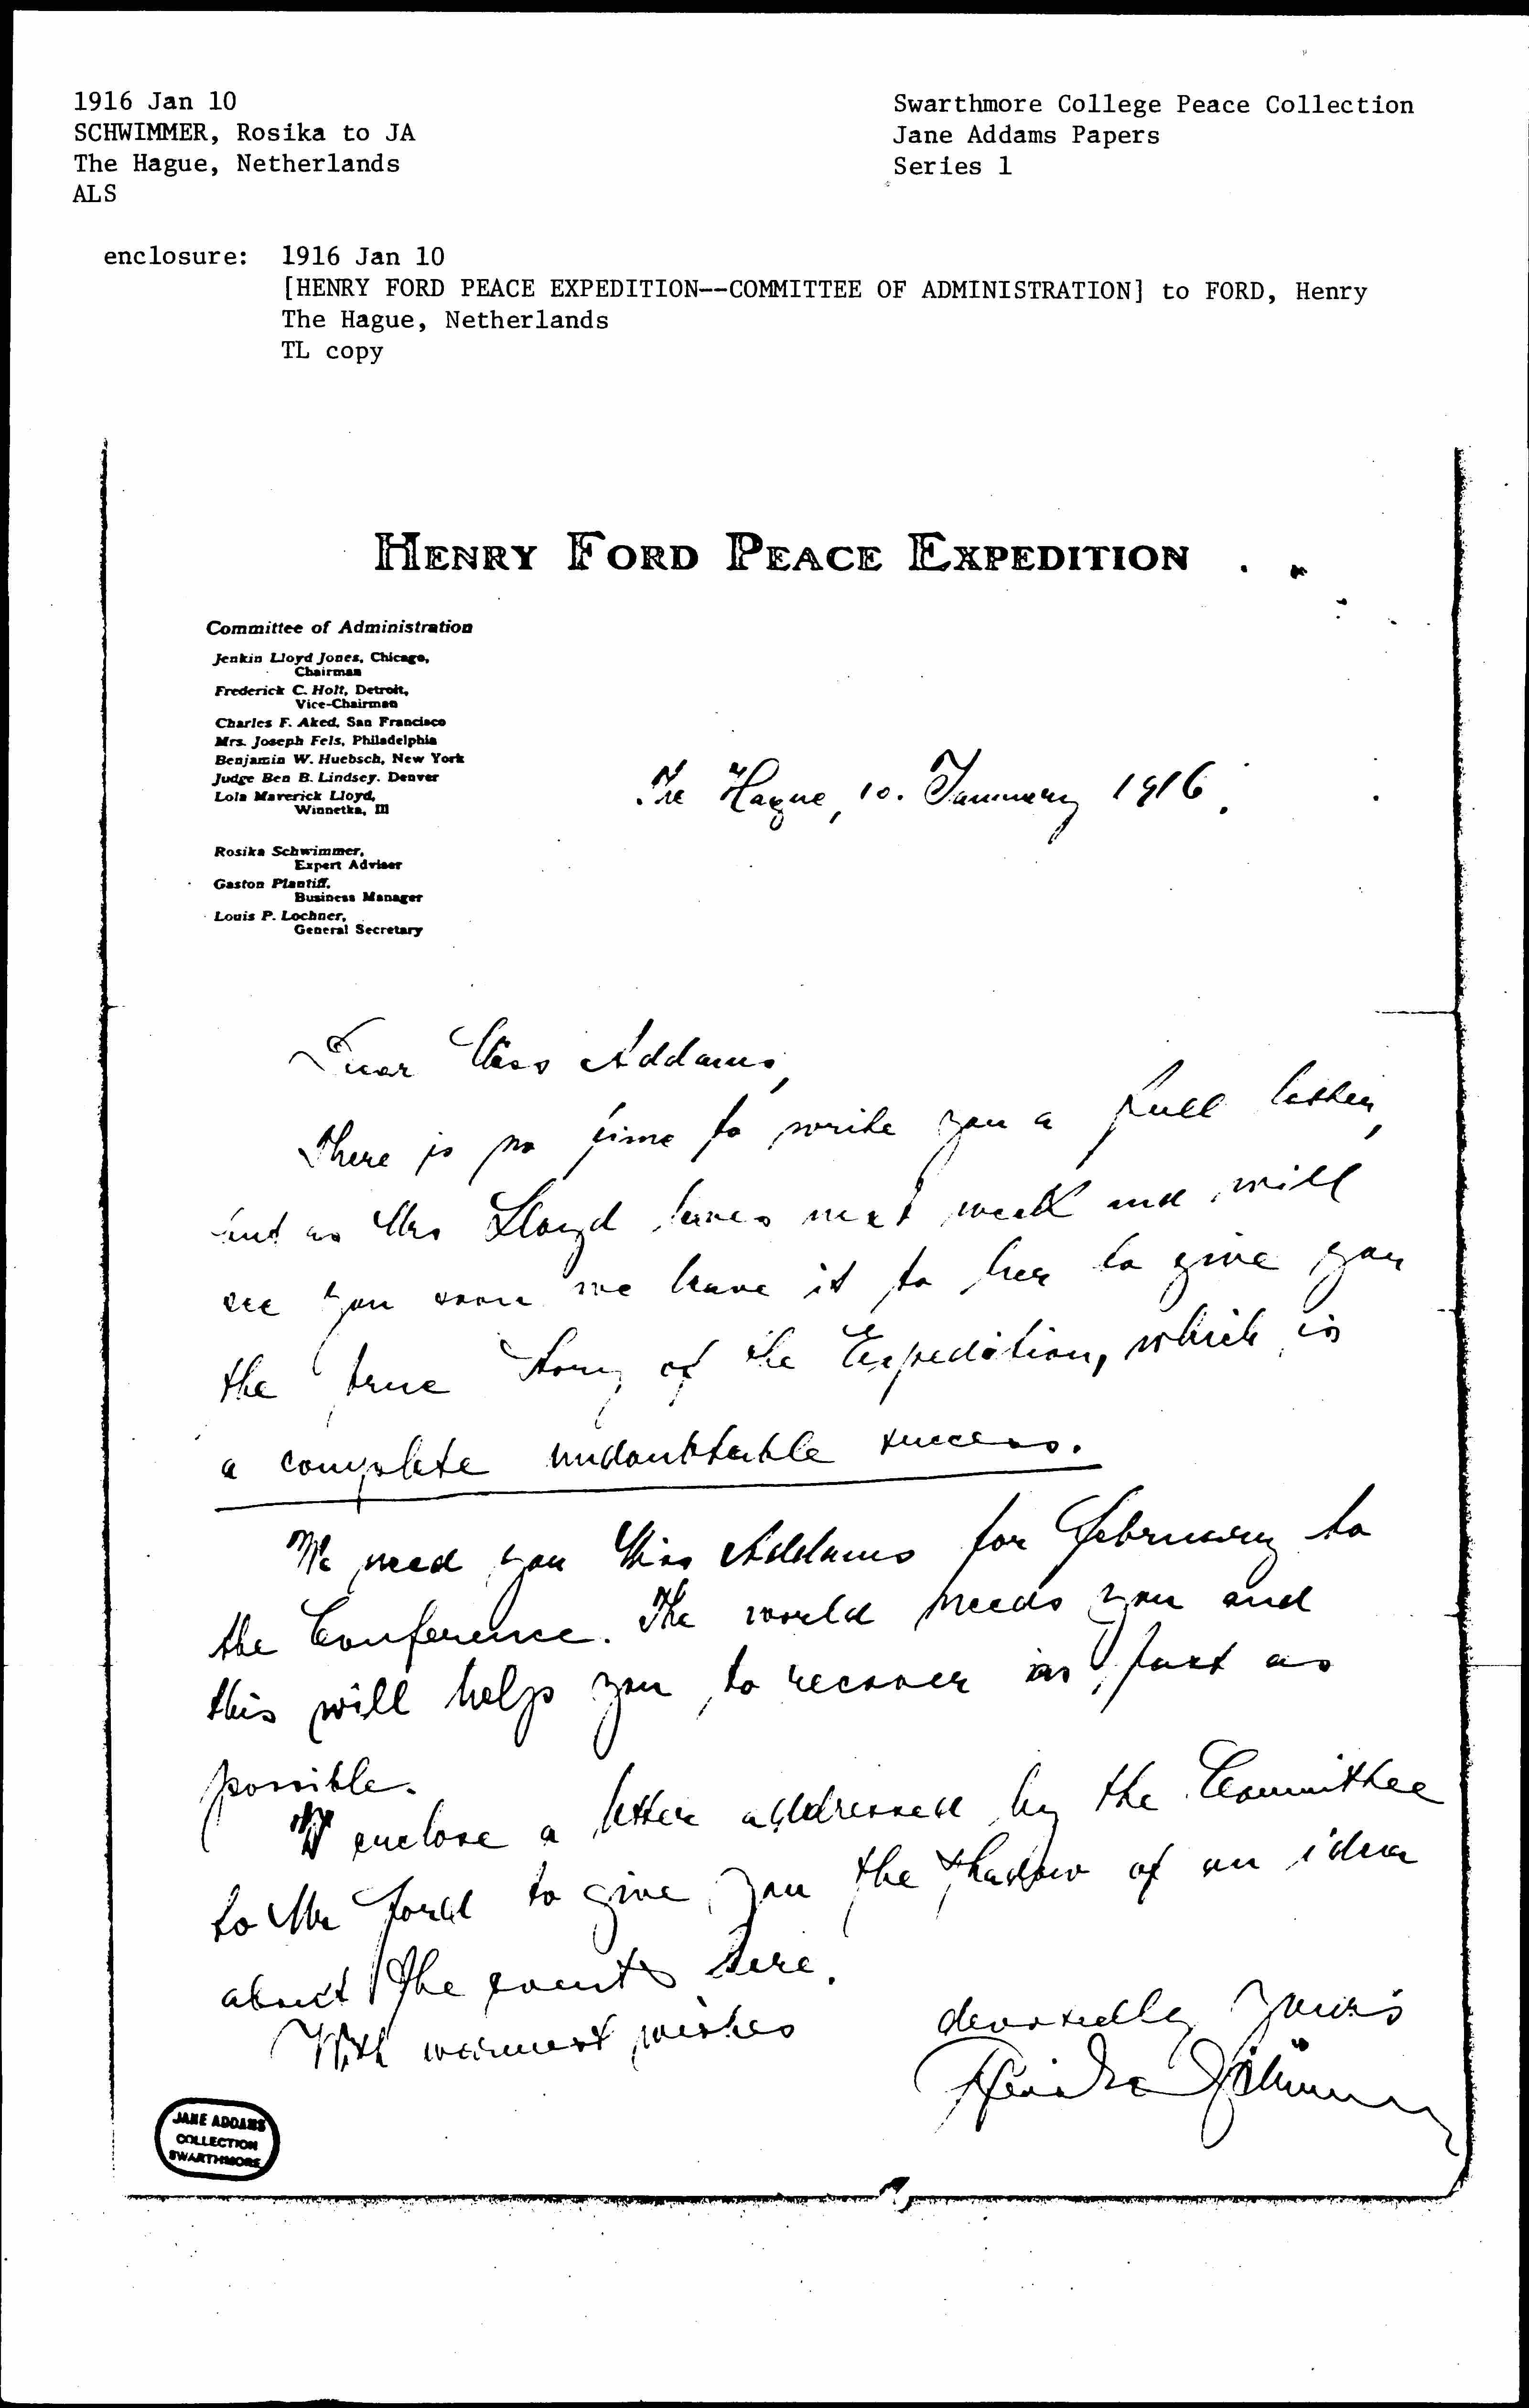 1916 Jan 10
SCHWIMMER, Rosika to JA
The Hague, Netherlands
ALS
Swarthmore College Peace Collection
Jane Addams Papers
Series 1
enclosure: 1916 Jan 10
[HENRY FORD PEACE EXPEDITION--COMMITTEE OF ADMINISTRATION] to FORD, Henry
The Hague, Netherlands
TL copy
HENRY FORD PEACE EXPEDITION
Committee of Administration
Jenkin Lloyd Jones, Chicago,
Chairman
Frederick C. Holt, Detroit,
Vice-Chairman
Charles F. Aked, San Francisco
Mrs. Joseph Fels, Philadelphia
Benjamin W. Huebsch, New York
Judge Ben B. Lindsey, Denver
Lola Maverick Lloyd,
Winnetka, Ill
Rosika Schwimmer,
Expert Adviser
Gaston Plantiff,
Business Manager
Louis P. Lochner,
General Secretary
The Hague, 10. January 1916.
Dear Miss Addams,
There is no time to write you a full letter,
but as Mrs Lloyd leaves next week and will
see you soon we leave it to her to give you
the true story of the Expedition, which is
a complete undoubtable success.
We need you Miss Addams for February to
the Conference. The world needs you and
this will help you to recover as fast as
possible.
I enclose a letter addressed by the Committee
to Mr Ford to give you the shadow of an idea
about the events here.
With warmest wishes
devotedly yours
Rosika Schwimmer
JANE ADDAMS
COLLECTION
SWARTHMORE